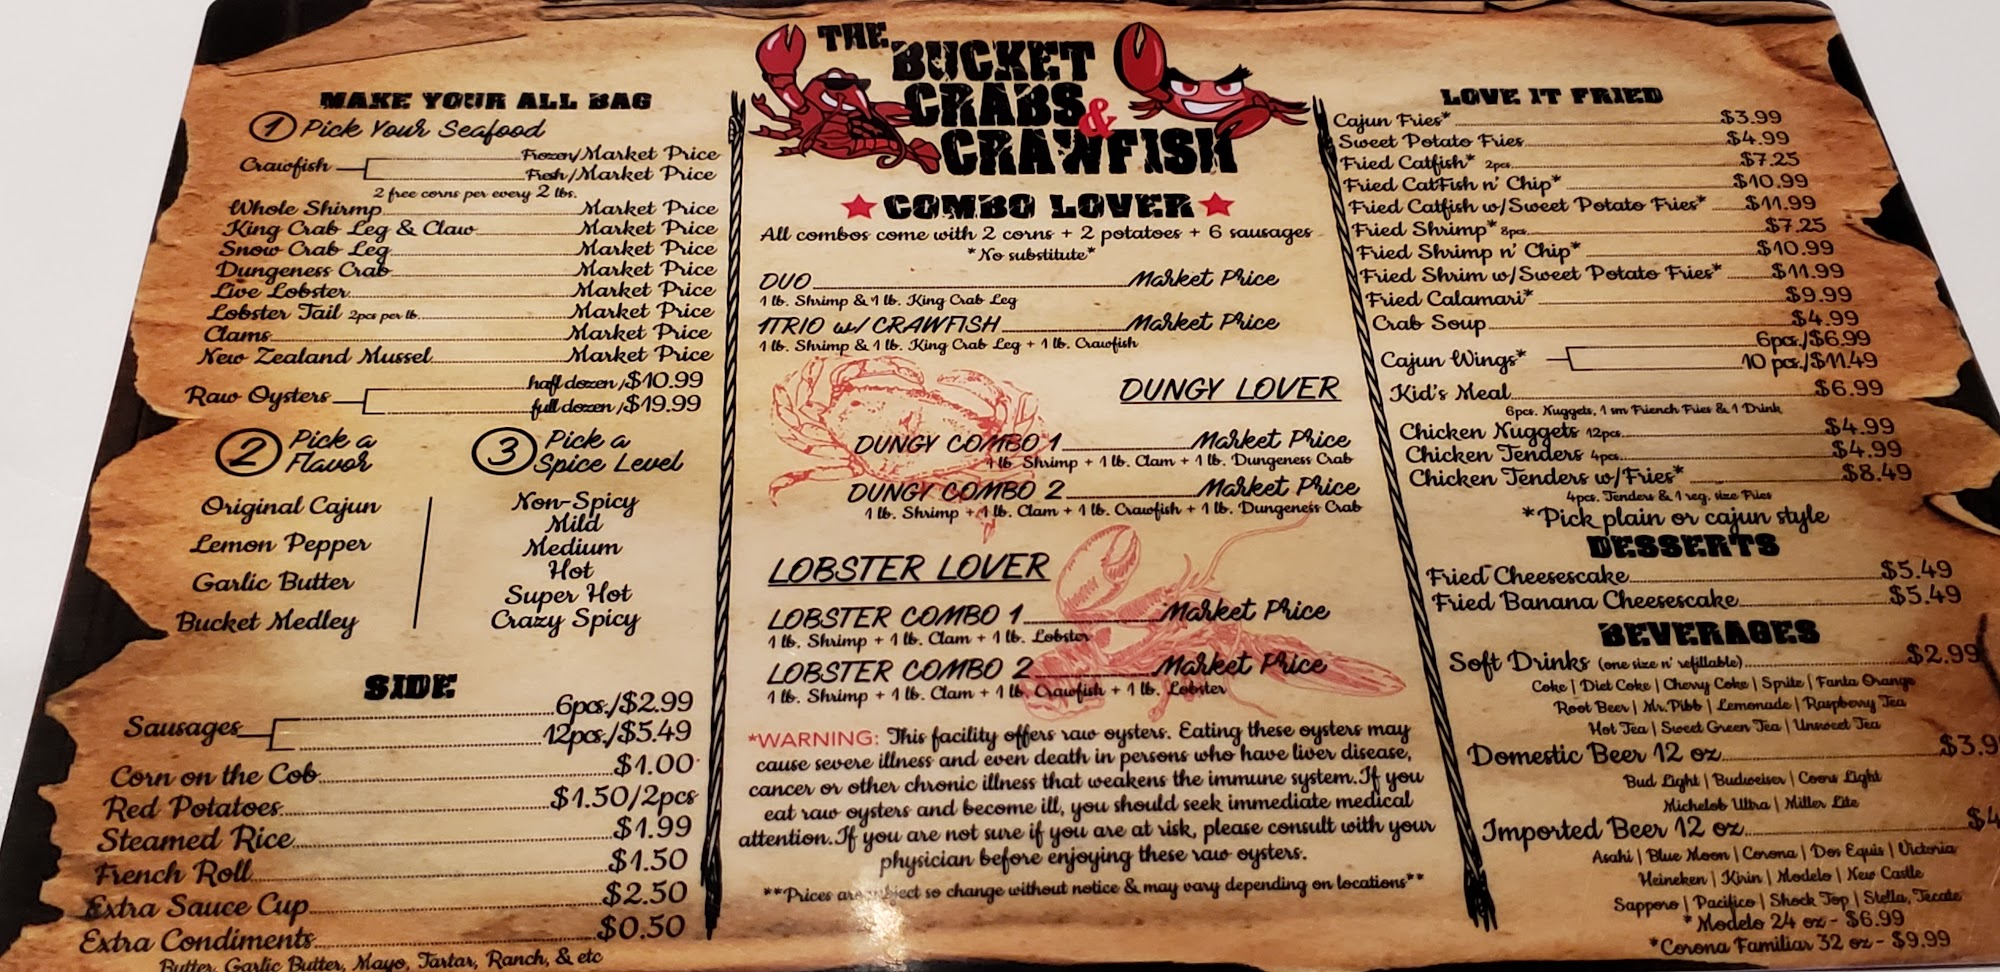 THE BUCKET CRABS & CRAWFISH
MAKE YOUR ALL BAG
1 Pick Your Seafood
Crawfish Frozen/Market Price
Fresh/Market Price
2 free corns per every 2 lbs.
Whole Shirmp Market Price
King Crab Leg & Claw Market Price
Snow Crab Leg Market Price
Dungeness Crab Market Price
Live Lobster Market Price
Lobster Tail 2pcs per lb. Market Price
Clams Market Price
New Zealand Mussel Market Price
Raw Oysters hafl dozen/$10.99
full dozen/$19.99
2 Pick a Flavor
Original Cajun
Lemon Pepper
Garlic Butter
Bucket Medley
3 Pick a Spice Level
Non-Spicy
Mild
Medium
Hot
Super Hot
Crazy Spicy
SIDE
Sausages 6pcs./$2.99
12pcs./$5.49
Corn on the Cob $1.00
Red Potatoes $1.50/2pcs
Steamed Rice $1.99
French Roll $1.50
Extra Sauce Cup $2.50
Extra Condiments $0.50
Butter, Garlic Butter, Mayo, Tartar, Ranch, & etc
COMBO LOVER
All combos come with 2 corns + 2 potatoes + 6 sausages
*No substitute*
DUO Market Price
1 lb. Shrimp & 1 lb. King Crab Leg
1TRIO w/ CRAWFISH Market Price
1 lb. Shrimp & 1 lb. King Crab Leg + 1 lb. Crawfish
DUNGY LOVER
DUNGY COMBO 1 Market Price
1 lb. Shrimp + 1 lb. Clam + 1 lb. Dungeness Crab
DUNGY COMBO 2 Market Price
1 lb. Shrimp + 1 lb. Clam + 1 lb. Crawfish + 1 lb. Dungeness Crab
LOBSTER LOVER
LOBSTER COMBO 1 Market Price
1 lb. Shrimp + 1 lb. Clam + 1 lb. Lobster
LOBSTER COMBO 2 Market Price
1 lb. Shrimp + 1 lb. Clam + 1 lb. Crawfish + 1 lb. Lobster
*WARNING: This facility offers raw oysters. Eating these oysters may
cause severe illness and even death in persons who have liver disease,
cancer or other chronic illness that weakens the immune system.If you
eat raw oysters and become ill, you should seek immediate medical
attention.If you are not sure if you are at risk, please consult with your
physician before enjoying these raw oysters.
**Prices are so change without notice & may vary depending on locations**
LOVE IT FRIED
Cajun Fries* $3.99
Sweet Potato Fries $4.99
Fried Catfish* 2pcs. $7.25
Fried CatFish n' Chip* $10.99
Fried Catfish w/Sweet Potato Fries* $11.99
Fried Shrimp* 8pcs. $7.25
Fried Shrimp n' Chip* $10.99
Fried Shrim w/Sweet Potato Fries* $11.99
Fried Calamari* $9.99
Crab Soup $4.99
Cajun Wings* 6pcs./$6.99
10 pcs./$11.49
Kid's Meal $6.99
6pcs. Nuggets, 1 sm Friench Fries & 1 Drink
Chicken Nuggets 12pcs. $4.99
Chicken Tenders 4pcs. $4.99
Chicken Tenders w/Fries* $8.49
4pcs. Tenders & 1 reg. size Fries
*Pick plain or cajun style
DESSERTS
Fried Cheesescake $5.49
Fried Banana Cheesescake $5.49
BEVERAGES
Soft Drinks (one size n' refillable) $2.99
Coke | Diet Coke | Cherry Coke | Sprite | Fanta Orange
Root Beer | Mr.Pibb | Lemonade | Raspberry Tea
Hot Tea | Sweet Green Tea | Unsweet Tea
Domestic Beer 12 oz $3.9
Bud Light | Budweiser | Coors Light
Michelob Ultra | Miller Lite
Imported Beer 12 oz $4
Asahi | Blue Moon | Corona | Dos Equis | Victoria
Heineken | Kirin | Modelo | New Castle
Sapporo | Pacifico | Shock Top | Stella, Tecate
*Modelo 24 oz - $6.99
*Corona Familiar 32 oz - $9.99